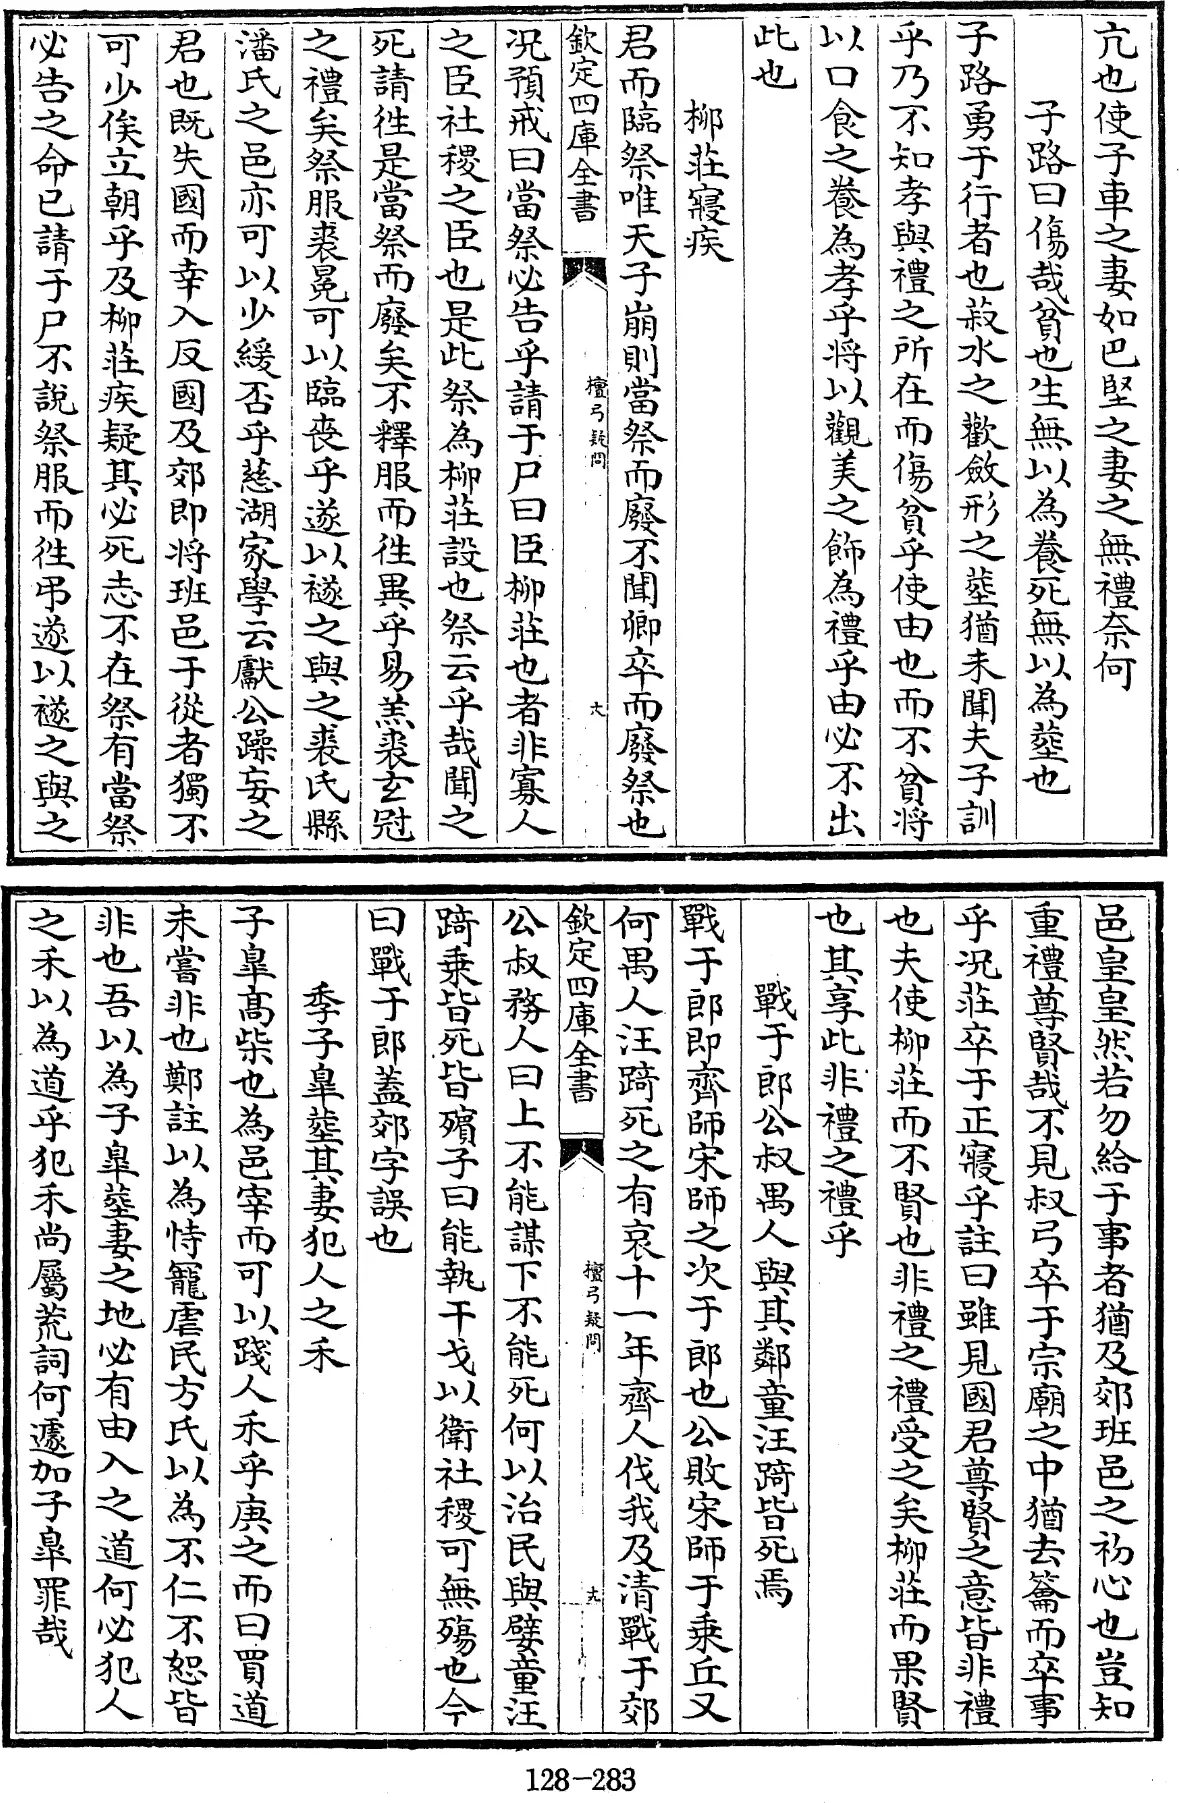 亢也使子車之妻如巴堅之妻之無禮奈何
子路曰傷哉貧也生無以為養死無以為塟也
子路勇于行者也菽水之歡斂形之塟猶未聞夫子訓
乎乃不知孝與禮之所在而傷貧乎使由也而不貧將
以口食之養為孝乎將以觀美之飾為禮乎由必不出
此也
柳莊寢疾
君而臨祭唯天子崩則當祭而廢不聞卿卒而廢祭也
欽定四庫全書
檀弓疑問
大
况預戒曰當祭必告乎請于尸曰臣柳莊也者非寡人
之臣社稷之臣也是此祭為柳莊設也祭云乎哉聞之
死請徃是當祭而廢矣不釋服而徃異乎易羔裘玄冠
之禮矣祭服裘冕可以臨喪乎遂以襚之與之裘氏縣
潘氏之邑亦可以少緩否乎慈湖家學云獻公躁妄之
君也既失國而幸入反國及郊即將班邑于從者獨不
可少俟立朝乎及柳莊疾疑其必死志不在祭有當祭
必告之命已請于尸不說祭服而徃弔遂以襚之與之
邑皇皇然若勿給于事者猶及郊班邑之初心也豈知
重禮尊賢哉不見叔弓卒于宗廟之中猶去籥而卒事
乎况莊卒于正寢乎註曰雖見國君尊賢之意皆非禮
也夫使柳莊而不賢也非禮之禮受之矣柳莊而果賢
也其享此非禮之禮乎
戰于郎公叔禺人與其鄰童汪踦皆死焉
戰于郎即齊師宋師之次于郎也公敗宋師于乗丘又
何禺人汪踦死之有哀十一年齊人伐我及清戰于郊
欽定四庫全書
檀弓疑問
九
公叔務人曰上不能謀下不能死何以治民與嬖童汪
踦乗皆死皆殯子曰能執干戈以衛社稷可無殤也今
曰戰于郎蓋郊字誤也
季子臯塟其妻犯人之禾
子臯髙柴也為邑宰而可以踐人禾乎庚之而曰買道
未嘗非也鄭註以為恃寵虐民方氏以為不仁不恕皆
非也吾以為子臯塟妻之地必有由入之道何必犯人
之禾以為道乎犯禾尚屬荒詞何遽加子臯罪哉
128-283